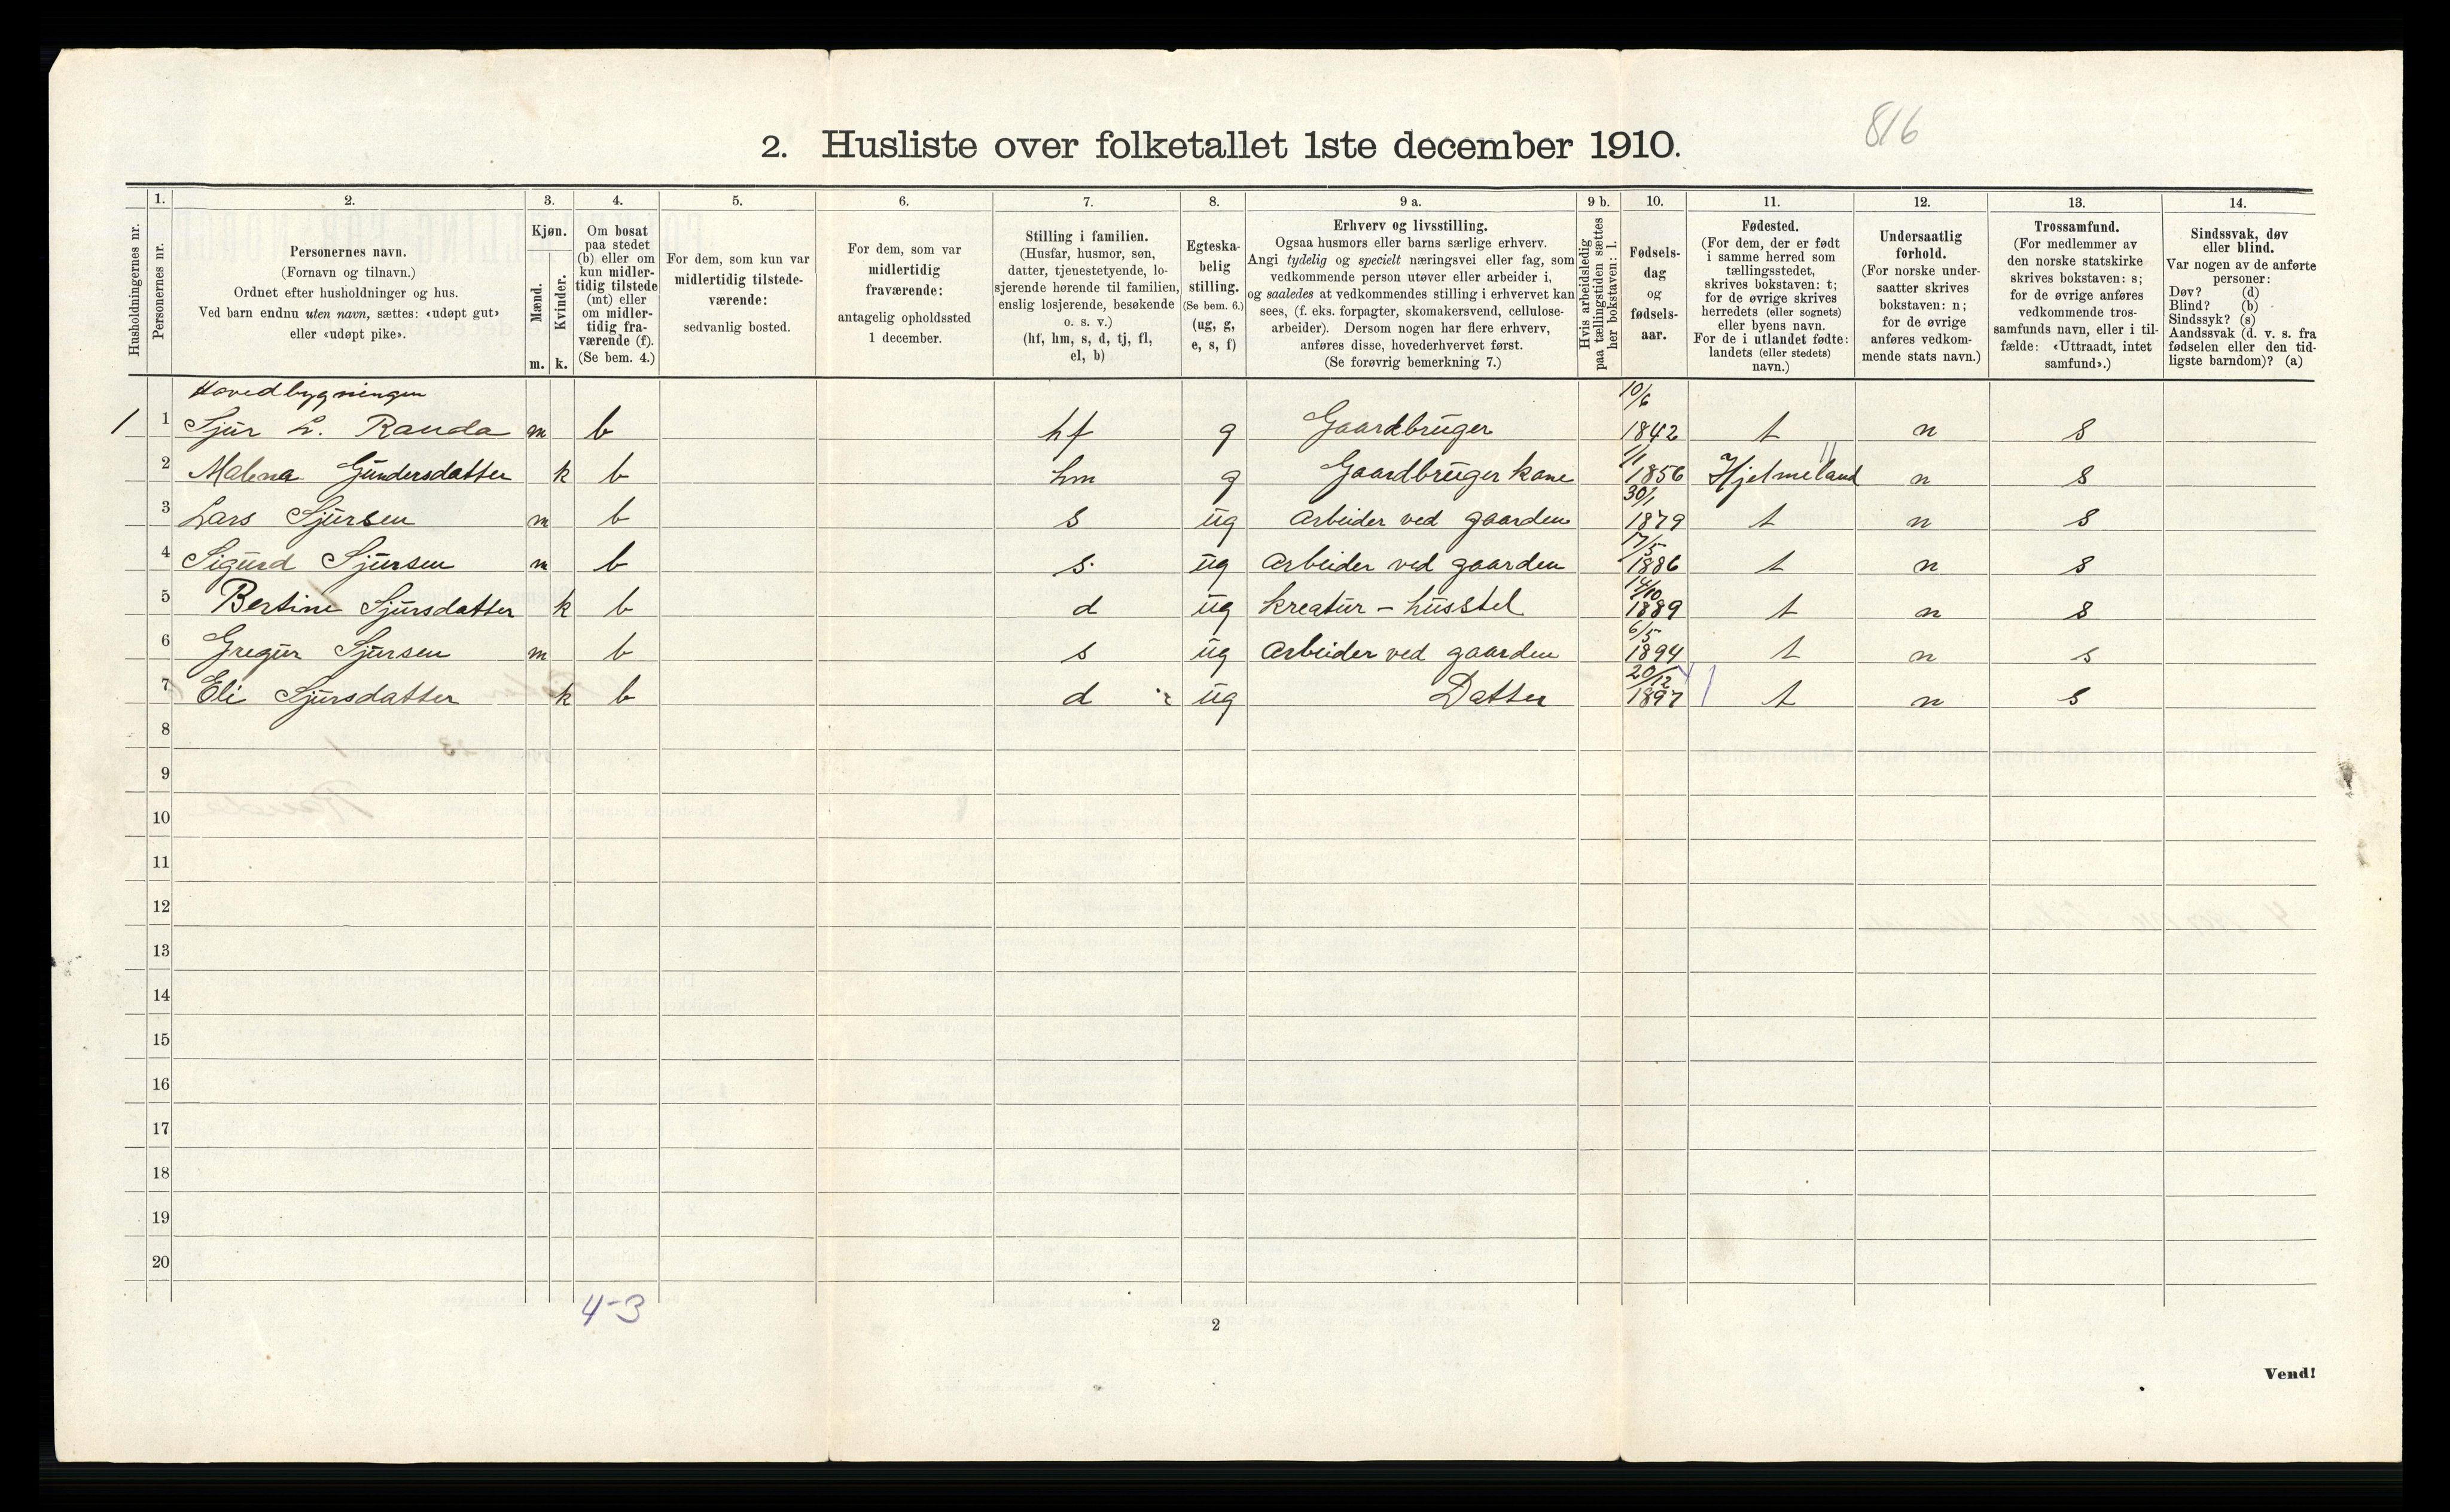 816
2. Husliste over folketallet 1ste december 1910.
Husholdningernes nr.
1.
Personernes nr.
2.
Personernes navn.
(Fornavn og tilnavn.)
Ordnet efter husholdninger og hus.
Ved barn endnu uten navn, sættes: «udøpt gut»
eller «udøpt pike».
3.
Kjøn.
Mænd.
Kvinder.
m. k.
4.
Om bosat
paa stedet
(b) eller om
kun midler-
tidig tilstede
(mt) eller
om midler-
tidig fra-
værende (f).
(Se bem. 4.)
5.
For dem, som kun var
midlertidig tilstede-
værende:
sedvanlig bosted.
6.
For dem, som var
midlertidig
fraværende:
antagelig opholdssted
1 december.
7.
Stilling i familien.
(Husfar, husmor, søn,
datter, tjenestetyende, lo-
sjerende hørende til familien,
enslig losjerende, besøkende
o. s. v.)
(hf, hm, s, d, tj, fl,
el, b)
8.
Egteska-
belig
stilling.
(Se bem. 6.)
(ug, g,
e, s, f)
9 a.
Erhverv og livsstilling.
Ogsaa husmors eller barns særlige erhverv.
Angi tydelig og specielt næringsvei eller fag, som
vedkommende person utøver eller arbeider i,
og saaledes at vedkommendes stilling i erhvervet kan
sees, (f. eks. forpagter, skomakersvend, cellulose-
arbeider). Dersom nogen har flere erhverv,
anføres disse, hovederhvervet først.
(Se forøvrig bemerkning 7.)
9 b.
Hvis arbeidsledig
paa tællingstiden sættes
her bokstaven: l.
10.
Fødsels-
dag
og
fødsels-
aar.
11.
Fødested.
(For dem, der er født
i samme herred som
tællingsstedet,
skrives bokstaven: t;
for de øvrige skrives
herredets (eller sognets)
eller byens navn.
For de i utlandet fødte:
landets (eller stedets)
navn.)
12.
Undersaatlig
forhold.
(For norske under-
saatter skrives
bokstaven: n;
for de øvrige
anføres vedkom-
mende stats navn.)
13.
Trossamfund.
(For medlemmer av
den norske statskirke
skrives bokstaven: s;
for de øvrige anføres
vedkommende tros-
samfunds navn, eller i til-
fælde: «Uttraadt, intet
samfund».)
14.
Sindssvak, døv
eller blind.
Var nogen av de anførte
personer:
Døv? (d)
Blind? (b)
Sindssyk? (s)
Aandssvak (d. v. s. fra
fødselen eller den tid-
ligste barndom)? (a)
Hovedbygningen
1 1 Sjur L. Rauda m b hf g Gaardbruger 10/6 1842 t n s
2 Malena Gundersdatter k b hm g Gaardbruger kone 1/1 1856 Hjelmeland n s
3 Lars Sjursen m b s ug arbeider ved gaarden 30/1 1879 t n s
4 Sigurd Sjursen m b s ug arbeider ved gaarden 17/5 1886 t n s
5 Bertine Sjursdatter k b d ug kreatur - husstel 14/10 1889 t n s
6 Gregur Sjursen m b s ug arbeider ved gaarden 6/5 1894 t n s
7 Eli Sjursdatter k b d ug Datter 20/12 1897 t n s
8
9
10
11
12
13
14
15
16
17
18
19
20
4-3
2
Vend!